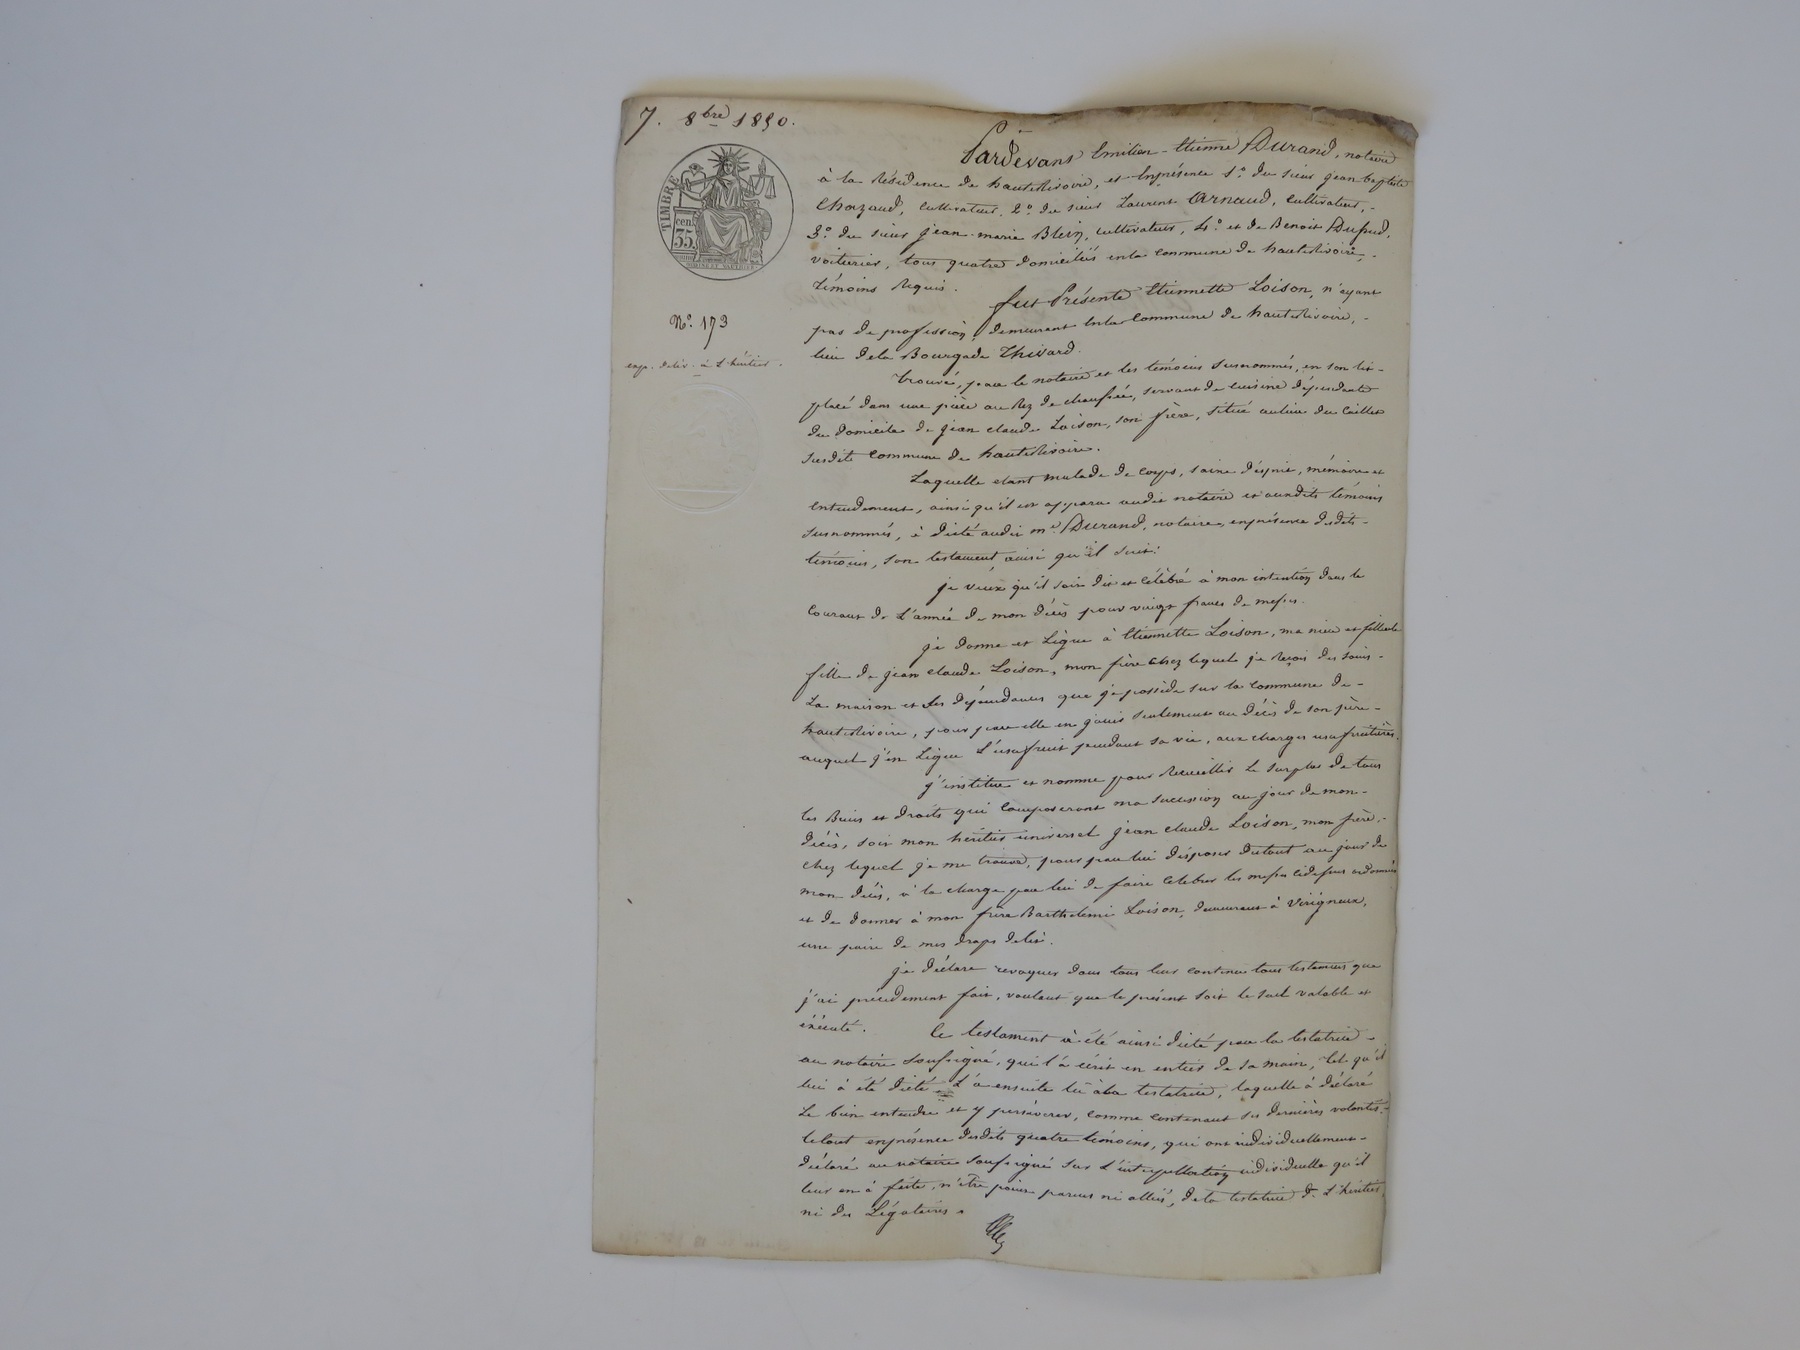 7. 8bre 1850.
TIMBRE
cen.
35
No. 173
exp. déliv. à l'héritier.
Pardevant Emilien-Etienne Durand, notaire
à la Résidence de hauterivoire, et Enprésence 1o. du sieur jean baptiste
Chazaud, cultivateur, 2o. du sieur Laurent Arnaud, cultivateur,
3o. du sieur jean-marie Blein, cultivateur, 4o. et de Benoit Dupud,
voiturier, tous quatre domiciliés enla commune de hauterivoire,
témoins Requis.
fut Présente Etiennette Loison, n'ayant
pas de profession, demeurant Enla Commune de hauterivoire,
lieu dela Bourgade Thivard.
trouvé, par le notaire et les témoins susnommés, en son lit
placé dans une pièce au Rez de chaussée, servant de cuisine dépendante
du domicile de jean claude Loison, son frère, situé aulieu du
susdite commune de hauterivoire.
Laquelle étant malade de corps, saine d'esprit, mémoire et
Entendement, ainsi qu'il est apparu audit notaire et auxdits témoins
susnommés, à dicté audit me. Durand, notaire, enprésence desdits
témoins, son testament, ainsi qu'il suit:
je veux qu'il soit dit et célébré à mon intention dans le
Courant de l'année de mon décès pour vingt francs de messes.
je donne et Lègue à Etiennette Loison, ma nièce et filleule
fille de jean claude Loison, mon frère chez lequel je Reçois des soins
La maison et ses dépendances que je possède sur la commune de
hauterivoire, pour par elle en jouir seulement au décès de son père
auquel j'en Lègue l'usufruit pendant sa vie, aux charges usufruitières.
j'institue et nomme pour Recueillir le surplus de tous
les Biens et droits qui Composeront ma succession au jour de mon
décès, soit mon héritier universel jean claude Loison, mon frère,
chez lequel je me trouve, pour par lui disposer dutout au jour de
mon décès, à la charge par lui de faire Célébrer les messes cidessus ordonnées
et de donner à mon frère Barthelemi Loison, demeurant à Virigneux,
une paire de mes draps delit.
je déclare révoquer dans tous leur contenu tous testamens que
j'ai précédement fait, voulant que le présent soit le seul valable et
éxécuté. Ce testament à été ainsi dicté par la testatrice
au notaire soussigné, qui l'à écrit en entier de sa main, tel qu'il
lui à été dicté L'à ensuite lu àla testatrice, laquelle à déclaré
Le bien entendre et y persévérer, comme contenant ses dernières volontés.
letout enprésence desdits quatre témoins, qui ont individuellement
déclaré au notaire soussigné sur l'interpellation individuelle qu'il
leur en à faite, n'être point parens ni alliés, dela testatrice de l'héritier,
ni des Légataires.